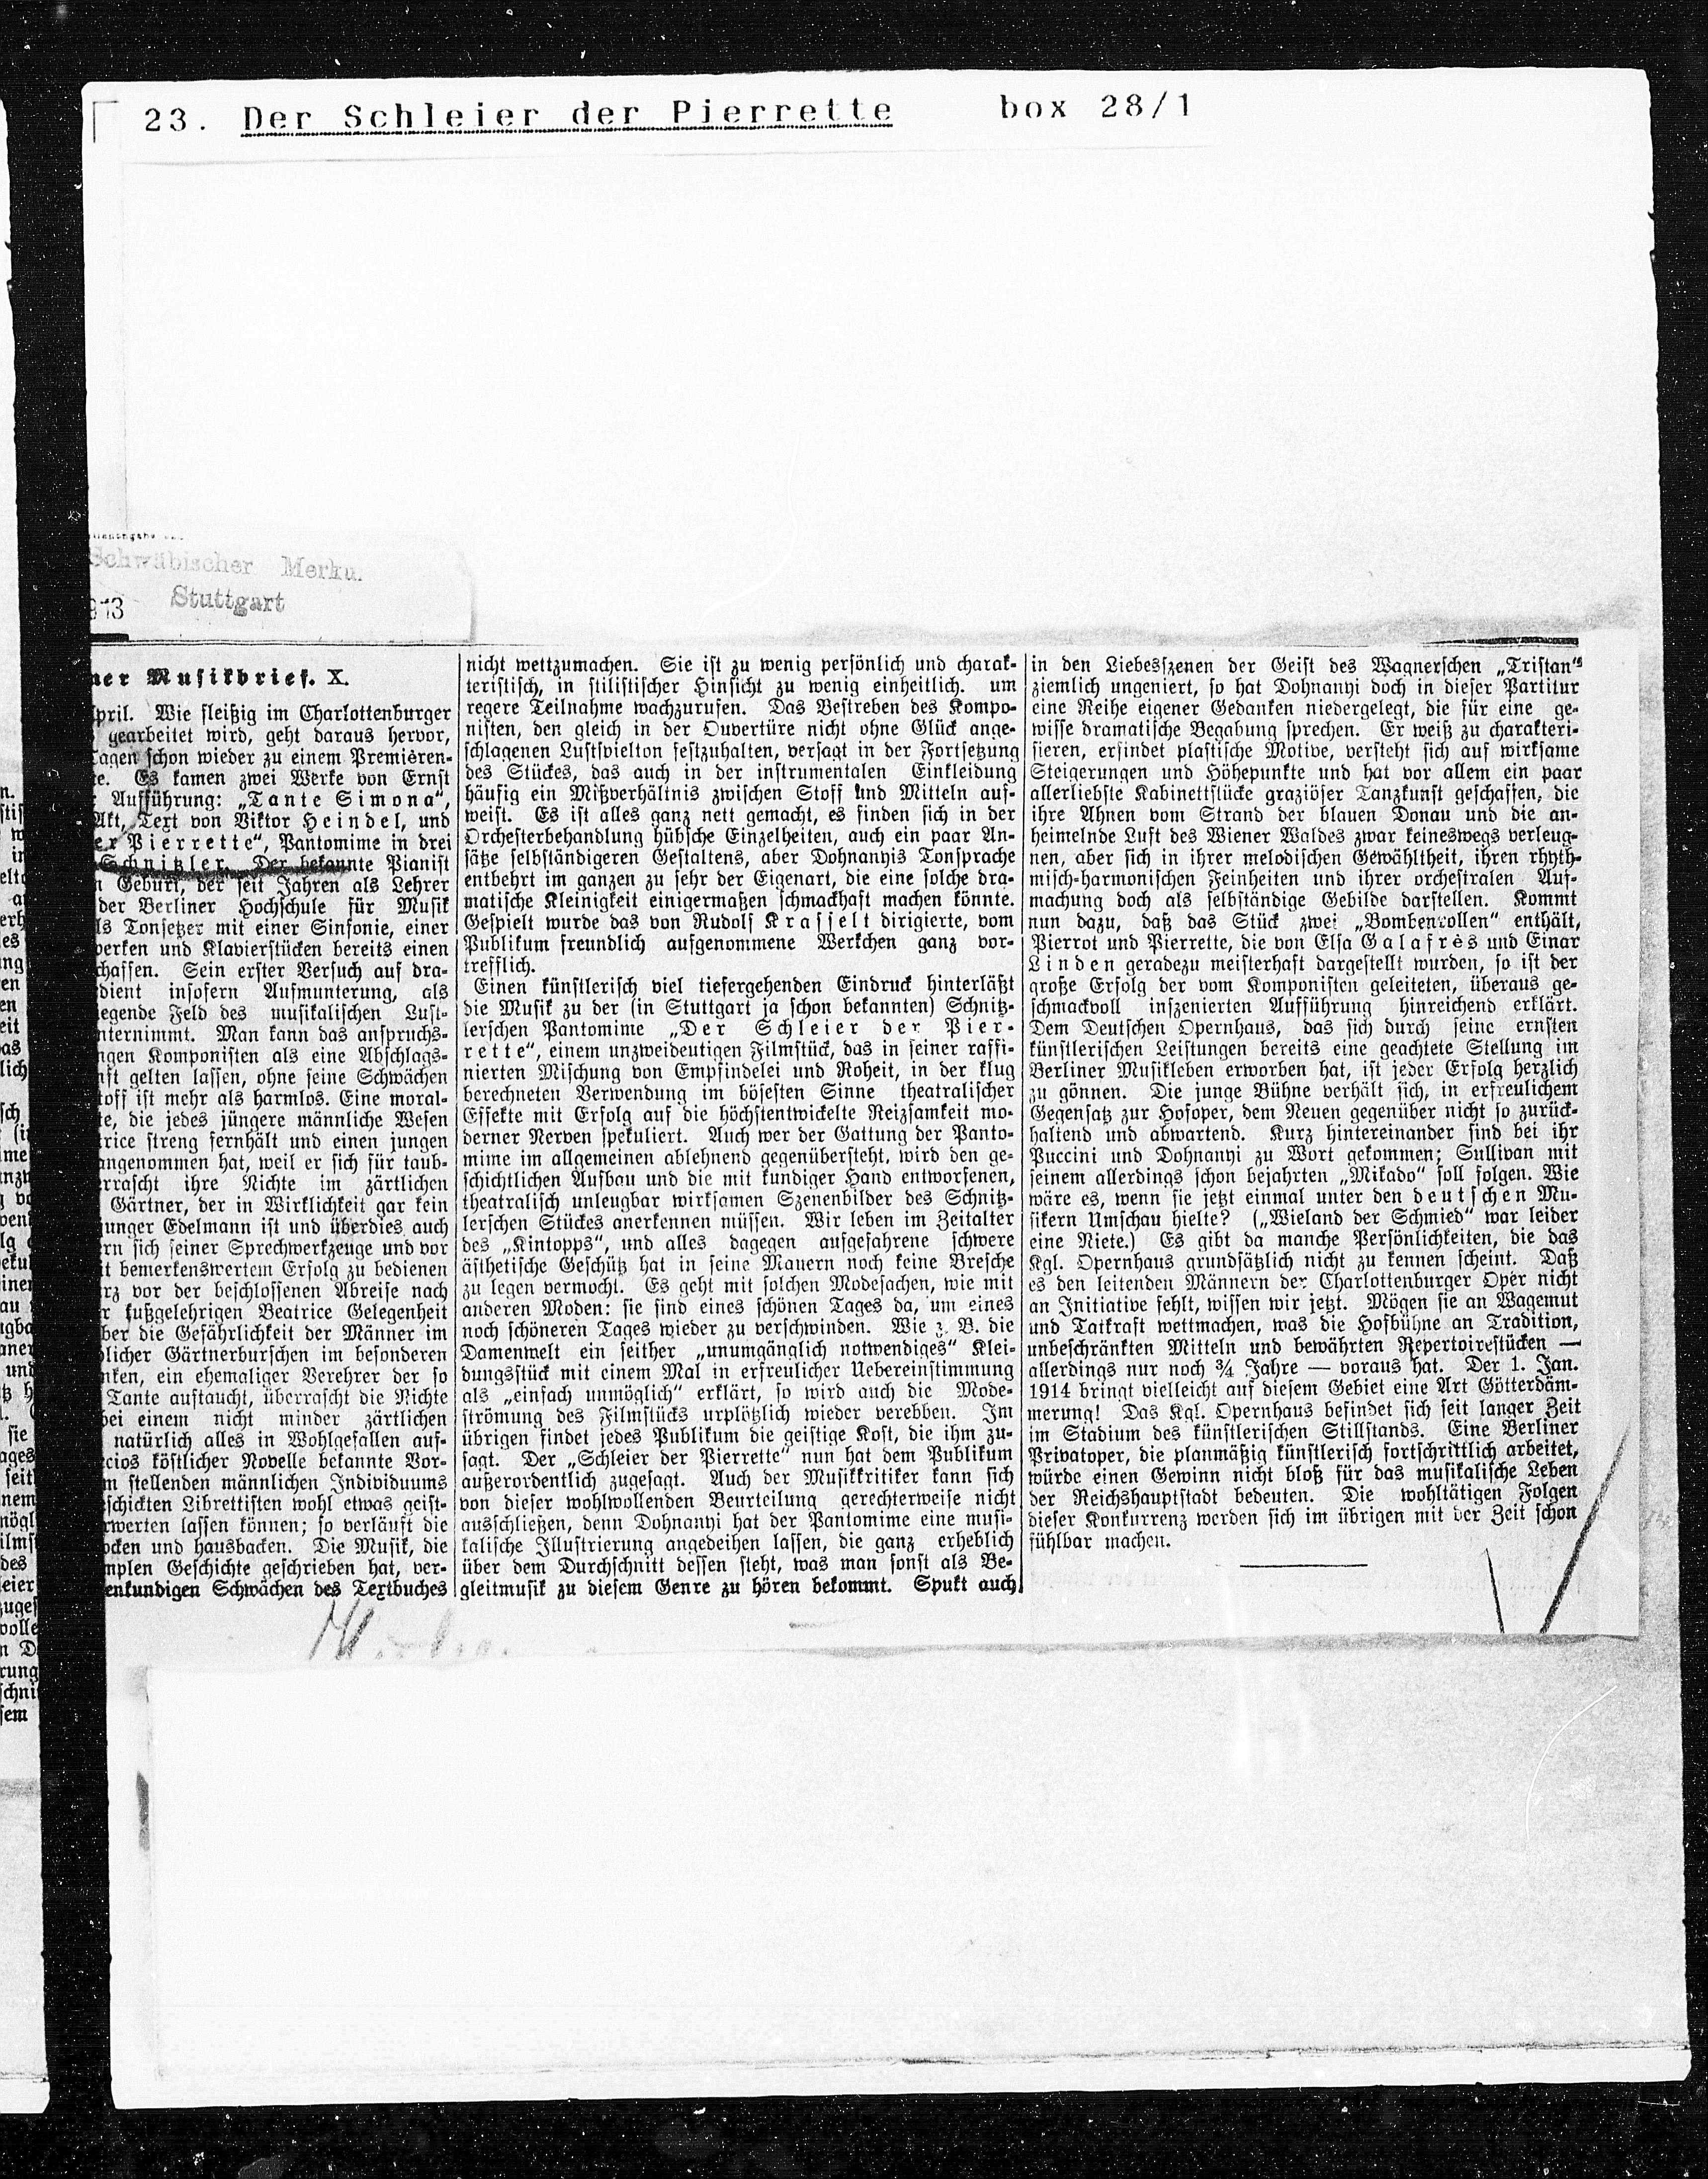 23. Der Schleier der Pierrette box 28/1
Schwäbischer Merku.
Stuttgart
913
ner Musikbrief. X.
pril. Wie fleißig im Charlottenburger
gearbeitet wird, geht daraus hervor,
Tagen schon wieder zu einem Premièren-
te. Es kamen zwei Werke von Ernst
Aufführung: „Tante Simona“,
Akt, Text von Viktor Heindel, und
er Pierrette“, Pantomime in drei
Schnitzler. Der bekannte Pianist
n Geburt, der seit Jahren als Lehrer
der Berliner Hochschule für Musik
ls Tonsetzer mit einer Sinfonie, einer
werken und Klavierstücken bereits einen
chaffen. Sein erster Versuch auf dra-
dient insofern Aufmunterung, als
egende Feld des musikalischen Lust-
nternimmt. Man kann das anspruchs-
ngen Komponisten als eine Abschlags-
nft gelten lassen, ohne seine Schwächen
toff ist mehr als harmlos. Eine moral-
te, die jedes jüngere männliche Wesen
rice streng fernhält und einen jungen
angenommen hat, weil er sich für taub-
errascht ihre Nichte im zärtlichen
Gärtner, der in Wirklichkeit gar kein
junger Edelmann ist und überdies auch
ern sich seiner Sprechwerkzeuge und vor
it bemerkenswertem Erfolg zu bedienen
rz vor der beschlossenen Abreise nach
r kußgelehrigen Beatrice Gelegenheit
ber die Gefährlichkeit der Männer im
blicher Gärtnerburschen im besonderen
nken, ein ehemaliger Verehrer der so
Tante auftaucht, überrascht die Nichte
bei einem nicht minder zärtlichen
natürlich alles in Wohlgefallen auf-
ccios köstlicher Novelle bekannte Vor-
m stellenden männlichen Individuums
schickten Librettisten wohl etwas geist-
rwerten lassen können; so verläuft die
ocken und hausbacken. Die Musik, die
mplen Geschichte geschrieben hat, ver-
enkundigen Schwächen des Textbuches
nicht wettzumachen. Sie ist zu wenig persönlich und charak-
teristisch, in stilistischer Hinsicht zu wenig einheitlich. um
regere Teilnahme wachzurufen. Das Bestreben des Kompo-
nisten, den gleich in der Ouvertüre nicht ohne Glück ange-
schlagenen Lustspielton festzuhalten, versagt in der Fortsetzung
des Stückes, das auch in der instrumentalen Einkleidung
häufig ein Mißverhältnis zwischen Stoff und Mitteln auf-
weist. Es ist alles ganz nett gemacht, es finden sich in der
Orchesterbehandlung hübsche Einzelheiten, auch ein paar An-
sätze selbständigeren Gestaltens, aber Dohnanyis Tonsprache
entbehrt im ganzen zu sehr der Eigenart, die eine solche dra-
matische Kleinigkeit einigermaßen schmackhaft machen könnte.
Gespielt wurde das von Rudolf Krasselt dirigierte, vom
Publikum freundlich aufgenommene Werkchen ganz vor-
trefflich.
Einen künstlerisch viel tiefergehenden Eindruck hinterläßt
die Musik zu der (in Stuttgart ja schon bekannten) Schnitz-
lerschen Pantomime „Der Schleier der Pier-
rette“, einem unzweideutigen Filmstück, das in seiner raffi-
nierten Mischung von Empfindelei und Roheit, in der klug
berechneten Verwendung im bösesten Sinne theatralischer
Effekte mit Erfolg auf die höchstentwickelte Reizsamkeit mo-
derner Nerven spekuliert. Auch wer der Gattung der Panto-
mime im allgemeinen ablehnend gegenübersteht, wird den ge-
schichtlichen Aufbau und die mit kundiger Hand entworfenen,
theatralisch unleugbar wirksamen Szenenbilder des Schnitz-
lerschen Stückes anerkennen müssen. Wir leben im Zeitalter
des „Kintopps“, und alles dagegen aufgefahrene schwere
ästhetische Geschütz hat in seine Mauern noch keine Bresche
zu legen vermocht. Es geht mit solchen Modesachen, wie mit
anderen Moden: sie sind eines schönen Tages da, um eines
noch schöneren Tages wieder zu verschwinden. Wie z. B. die
Damenwelt ein seither „unumgänglich notwendiges“ Klei-
dungsstück mit einem Mal in erfreulicher Uebereinstimmung
als „einfach unmöglich“ erklärt, so wird auch die Mode-
strömung des Filmstücks urplötzlich wieder verebben. Im
übrigen findet jedes Publikum die geistige Kost, die ihm zu-
sagt. Der „Schleier der Pierrette“ nun hat dem Publikum
außerordentlich zugesagt. Auch der Musikkritiker kann sich
von dieser wohlwollenden Beurteilung gerechterweise nicht
ausschließen, denn Dohnanyi hat der Pantomime eine musi-
kalische Illustrierung angedeihen lassen, die ganz erheblich
über dem Durchschnitt dessen steht, was man sonst als Be-
gleitmusik zu diesem Genre zu hören bekommt. Spukt auch
in den Liebesszenen der Geist des Wagnerschen „Tristan“s
ziemlich ungeniert, so hat Dohnanyi doch in dieser Partitur
eine Reihe eigener Gedanken niedergelegt, die für eine ge-
wisse dramatische Begabung sprechen. Er weiß zu charakteri-
sieren, erfindet plastische Motive, versteht sich auf wirksame
Steigerungen und Höhepunkte und hat vor allem ein paar
allerliebste Kabinettstücke graziöser Tanzkunst geschaffen, die
ihre Ahnen vom Strand der blauen Donau und die an-
heimelnde Luft des Wiener Waldes zwar keineswegs verleug-
nen, aber sich in ihrer melodischen Gewähltheit, ihren rhyth-
misch-harmonischen Feinheiten und ihrer orchestralen Auf-
machung doch als selbständige Gebilde darstellen. Kommt
nun dazu, daß das Stück zwei „Bombenrollen“ enthält,
Pierrot und Pierrette, die von Elsa Galafrès und Einar
Linden geradezu meisterhaft dargestellt wurden, so ist der
große Erfolg der vom Komponisten geleiteten, überaus ge-
schmackvoll inszenierten Aufführung hinreichend erklärt.
Dem Deutschen Opernhaus, das sich durch seine ernsten
künstlerischen Leistungen bereits eine geachtete Stellung im
Berliner Musikleben erworben hat, ist jeder Erfolg herzlich
zu gönnen. Die junge Bühne verhält sich, in erfreulichem
Gegensatz zur Hofoper, dem Neuen gegenüber nicht so zurück-
haltend und abwartend. Kurz hintereinander sind bei ihr
Puccini und Dohnanyi zu Wort gekommen; Sullivan mit
seinem allerdings schon bejahrten „Mikado“ soll folgen. Wie
wäre es, wenn sie jetzt einmal unter den deutschen Mu-
sikern Umschau hielte? („Wieland der Schmied“ war leider
eine Niete.) Es gibt da manche Persönlichkeiten, die das
Kgl. Opernhaus grundsätzlich nicht zu kennen scheint. Daß
es den leitenden Männern der Charlottenburger Oper nicht
an Initiative fehlt, wissen wir jetzt. Mögen sie an Wagemut
und Tatkraft wettmachen, was die Hofbühne an Tradition,
unbeschränkten Mitteln und bewährten Repertoirestücken —
allerdings nur noch ¾ Jahre — voraus hat. Der 1. Jan.
1914 bringt vielleicht auf diesem Gebiet eine Art Götterdäm-
merung! Das Kgl. Opernhaus befindet sich seit langer Zeit
im Stadium des künstlerischen Stillstands. Eine Berliner
Privatoper, die planmäßig künstlerisch fortschrittlich arbeitet,
würde einen Gewinn nicht bloß für das musikalische Leben
der Reichshauptstadt bedeuten. Die wohltätigen Folgen
dieser Konkurrenz werden sich im übrigen mit der Zeit schon
fühlbar machen.